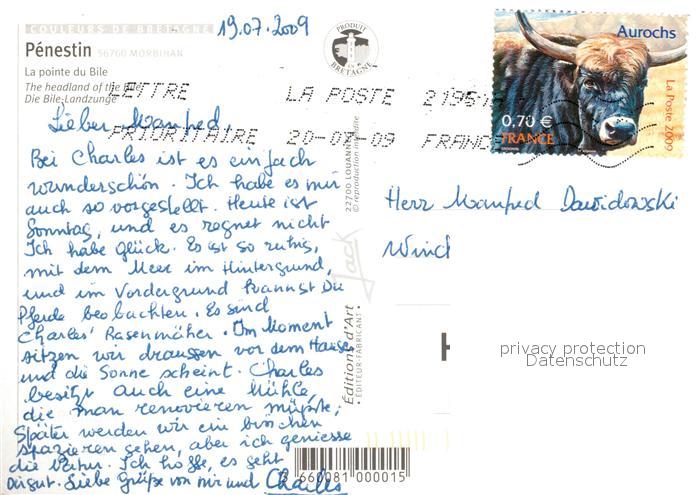 COULEURS DE BRETAGNE
19.07.2009
PRODUIT EN BRETAGNE
Aurochs
Pénestin 56760 MORBIHAN
La pointe du Bile
The headland of the Bile
Die Bile-Landzunge
LETTRE LA POSTE 21951A
PRIORITAIRE 20-07-09 FRANC
0,70 €
FRANCE
La Poste 2009
Lieber Manfred,
Bei Charles ist es einfach
wunderschön. Ich habe es mir
auch so vorgestellt. Heute ist
Sonntag, und es regnet nicht
Ich habe Glück. Es ist so ruhig,
mit dem Meer im Hintergrund,
und im Vordergrund kannst Du
Pferde beobachten. Es sind
Charles' Rasenmäher. Im Moment
sitzen wir draussen vor dem Hause
und die Sonne scheint. Charles
besitzt auch eine Mühle,
die man renovieren müßte;
Später werden wir ein bischen
spazieren gehen, aber ich geniesse
die Natur. Ich hoffe, es geht
Dirgut. Liebe Grüße von mir und Charles
22700 LOUANNEC
© reproduction interdite
Jack
Editions d'Art
• EDITEUR FABRICANT •
Herr Manfred Dawidowski
Wind
H
privacy protection
Datenschutz
3 660081 000015